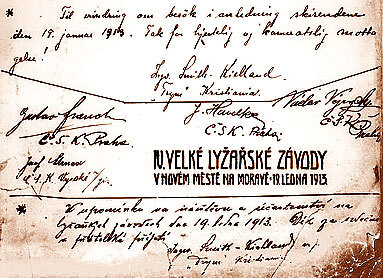 * Til vindring om besök i anledning skirendene
den 19. januar 1913. Tak for hjertelig og kameratslig motta-
gelse!
Ingv. Smith-Kielland
"Trym" Kristiania.
Gustav
Č.S.K. Praha
J. Havelka
Č.S.K. Praha.
Václav Vojen
Č.S.K.
Praha
Josef
Č.S.K. Vysoké
IV. VELKÉ LYŽAŘSKÉ ZÁVODY
V NOVÉM MĚSTĚ NA MORAVĚ · 19. LEDNA 1913
* K upomínce na návštěvu a účastenství na
lyžařských závodech dne 19. ledna 1913. Dík za srdečné
a přátelské přijetí
Ingv. Smith-Kielland
"Trym" Kristiania.